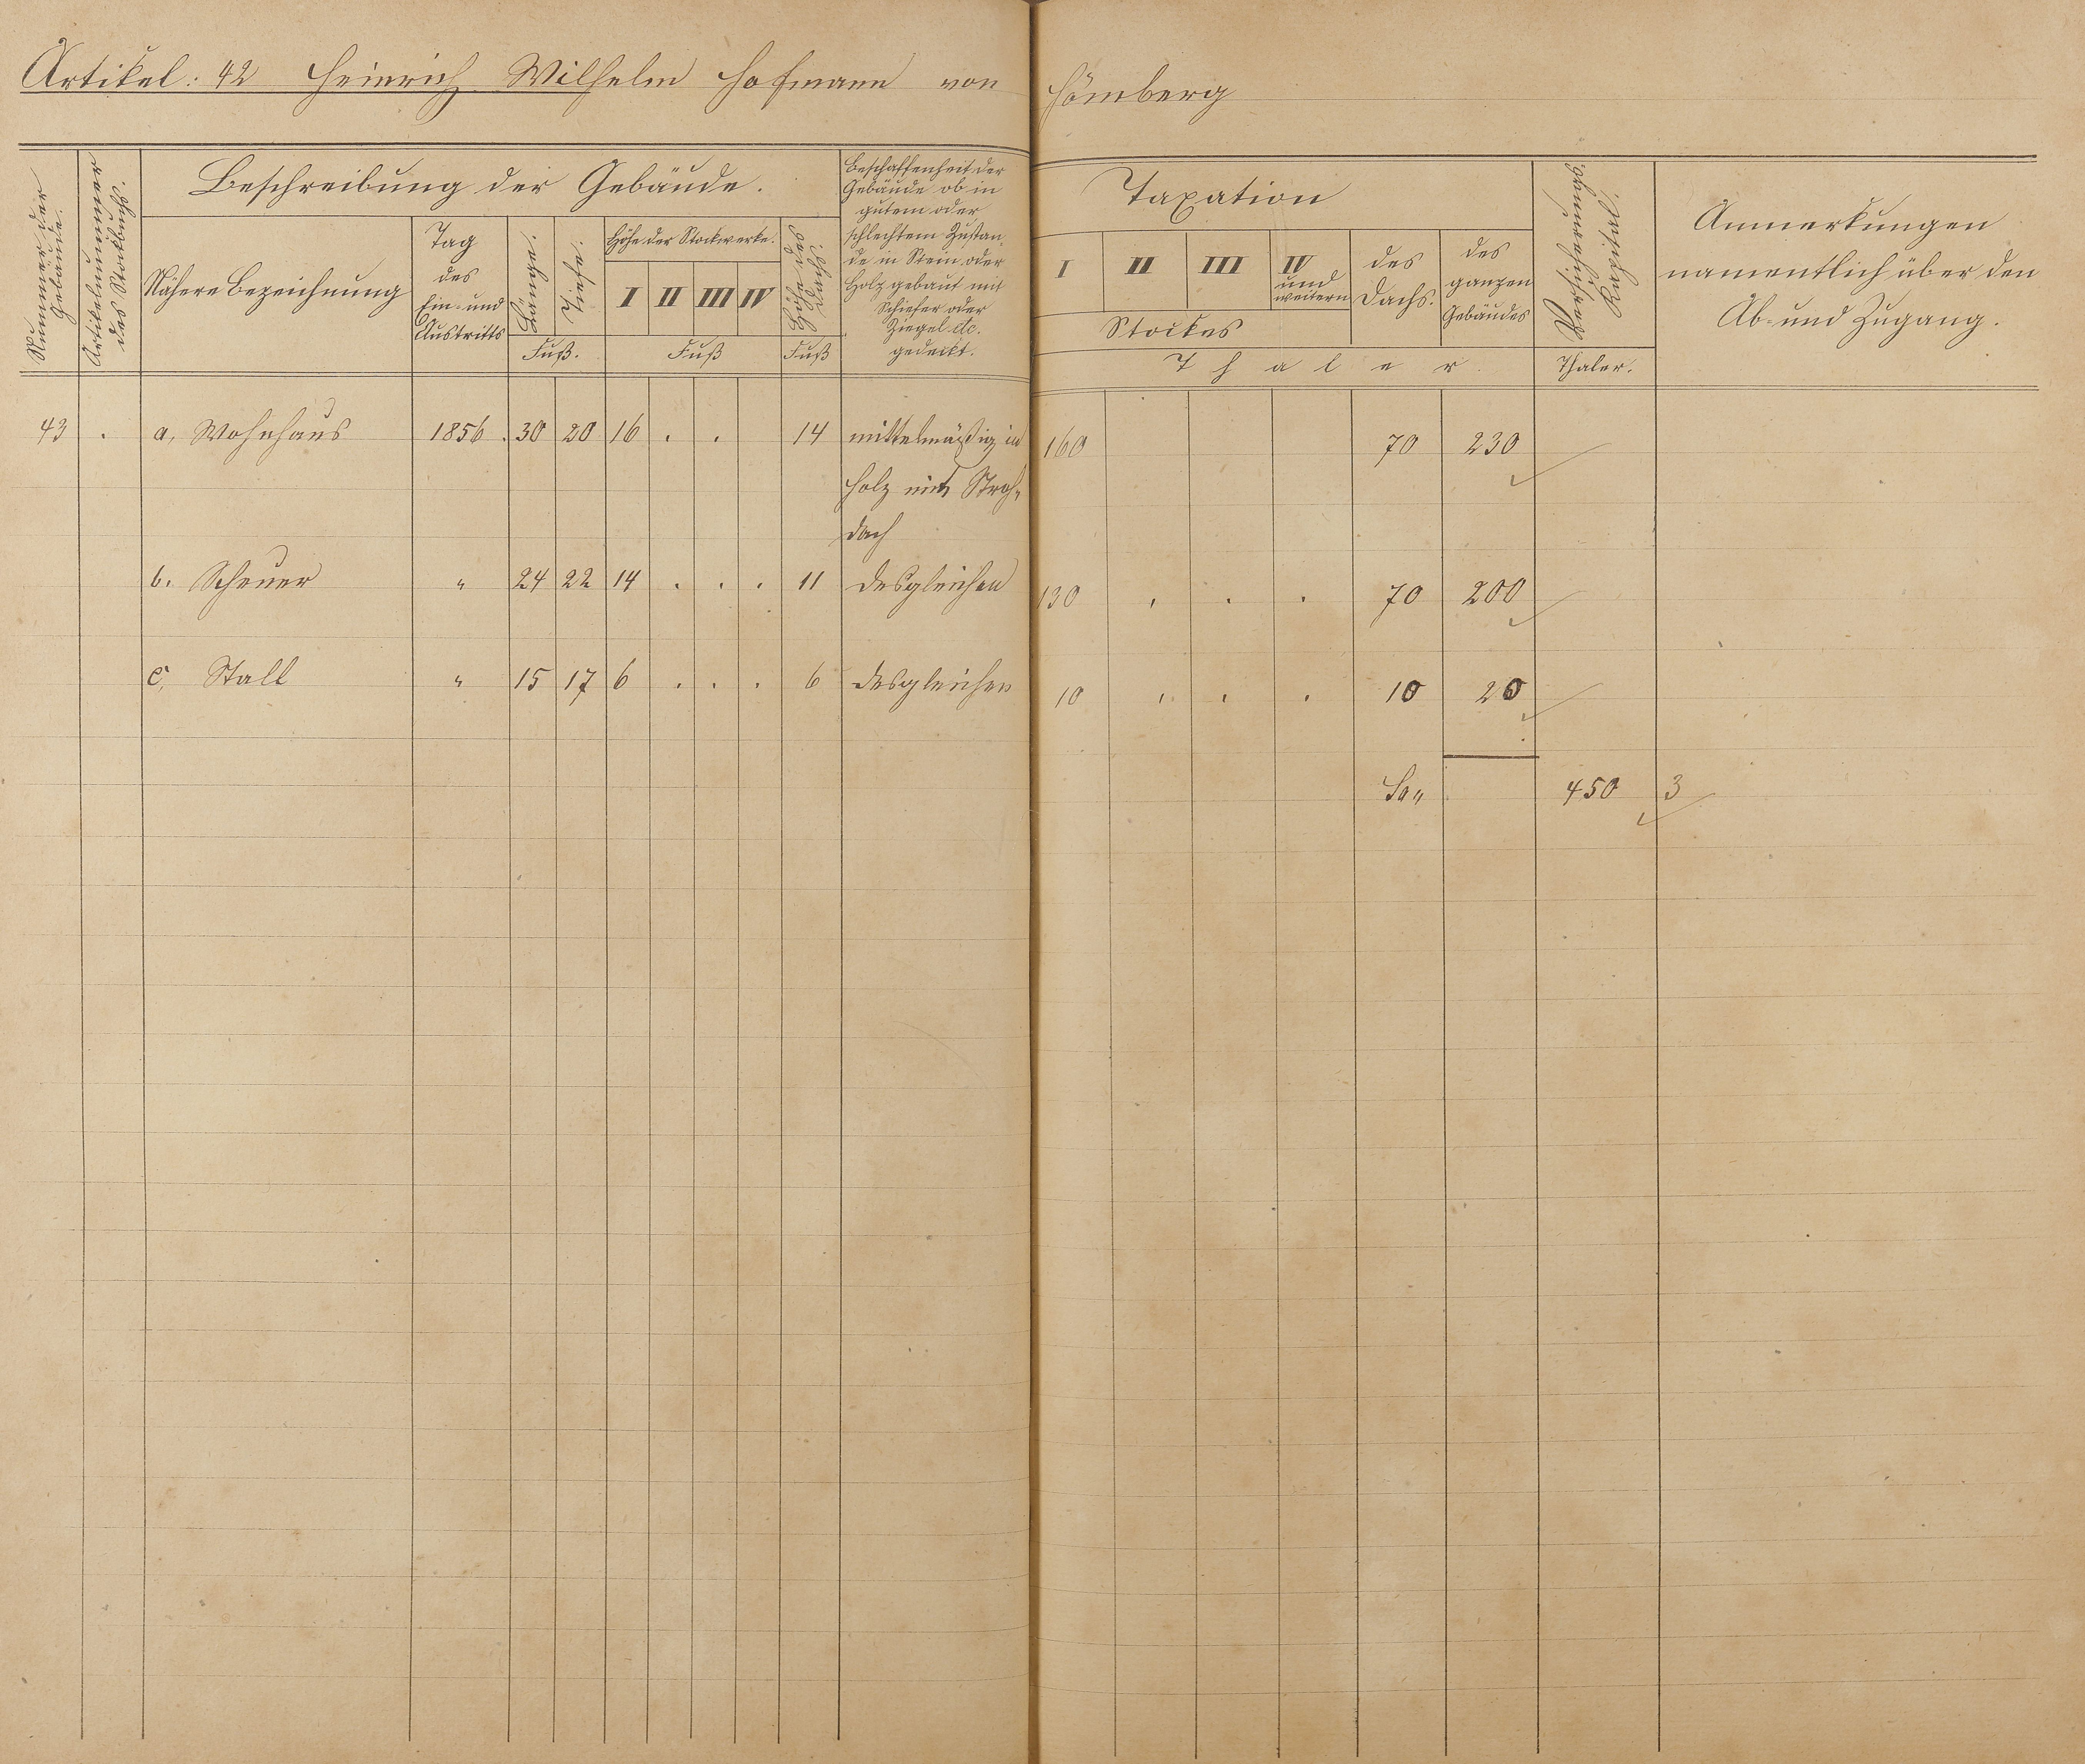 Artikel: 42 Heinrich Wilhelm Hofmann von Hömberg
Nummer der Gebäude.
Artikelnummer des Stockbuchs.
Beschreibung der Gebäude.
Nähere Bezeichnung
Tag
des
Ein- und
Austritts
Länge.
Tiefe.
Fuß.
Höhe der Stockwerke.
I II III IV
Fuß
Höhe des Dachs.
Fuß
Beschaffenheit der
Gebäude ob in
gutem oder
schlechtem Zustan-
de in Stein oder
Holz gebaut mit
Schiefer oder
Ziegel etc.
gedeckt.
Taxation
I II III IV
und
weitern
Stockes
des
Dachs.
des
ganzen
Gebäudes
Thaler
Versicherungs-
Kapital.
Thaler.
Anmerkungen
namentlich über den
Ab- und Zugang.
43 . a, Wohnhaus 1856. 30 20 16 . . 14 mittelmäßig in 160 70 230
Holz mit Stroh-
dach
b. Scheuer " 24 22 14 . . . 11 desgleichen 130 , . . 70 200
c, Stall " 15 17 6 . . . 6 desgleichen 10 , , , 10 20
Sa,, 450 3